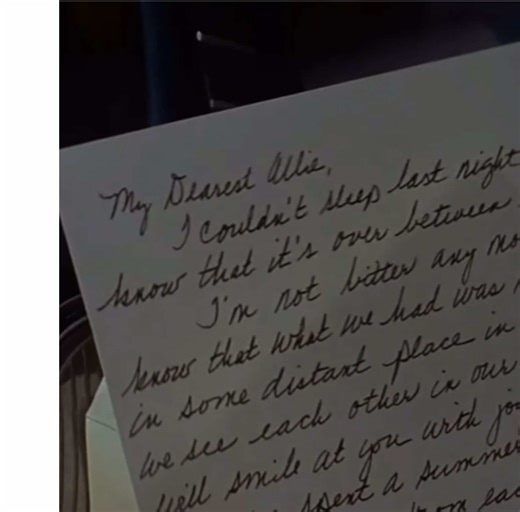 My Dearest Allie,
I couldn't sleep last night
know that it's over between
I'm not bitter any
know that what we had was
in some distant place in
we see each other in our
I'll smile at you with
spent a summer
from